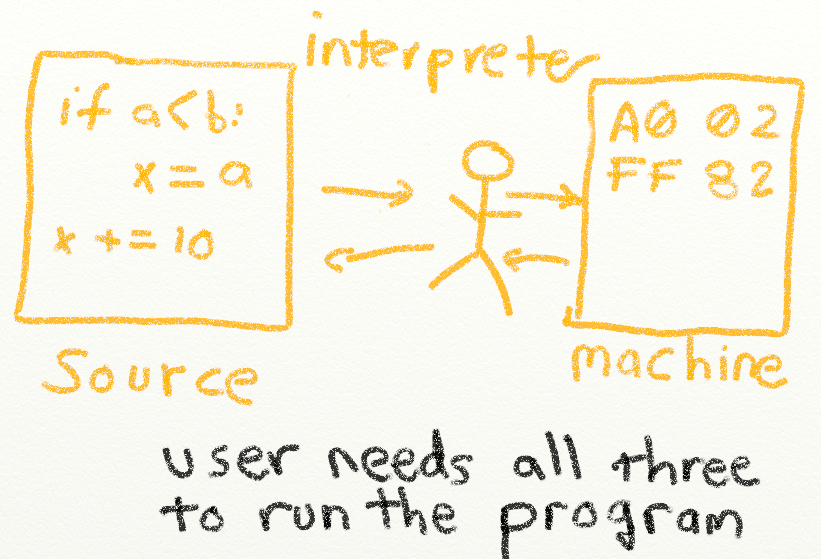 interpreter
if a<b:
x = a
x += 10
A0 02
FF 82
Source
machine
user needs all three
to run the program